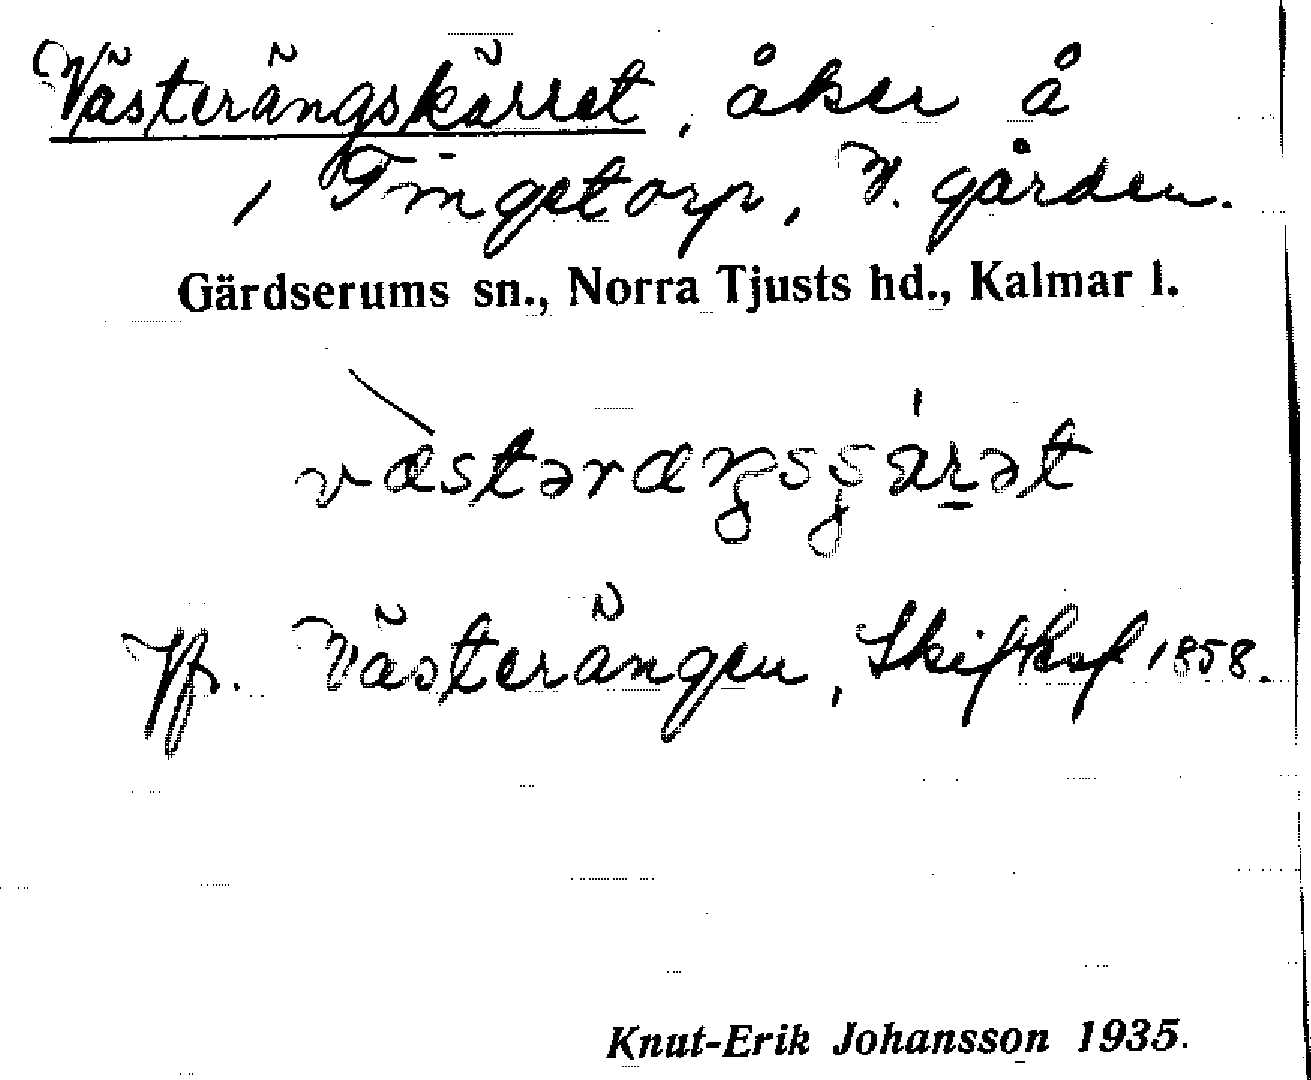 Västerängskärret, åker å
, Tingetorp, V. gården.
Gärdserums sn., Norra Tjusts hd., Kalmar l.
Jfr. Västerängen, Skifthsf 1858.
Knut-Erik Johansson 1935.